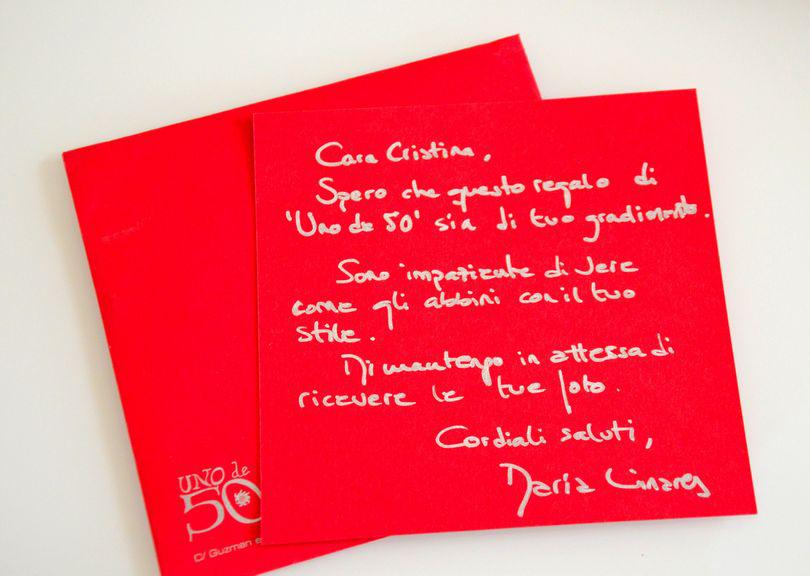 Cara Cristina,
Spero che questo regalo di
'Uno de 50' sia di tuo gradimento.
Sono impaziente di vere
come gli abbini con il tuo
stile.
Mi mantengo in attessa di
ricevere le tue foto.
Cordiali saluti,
María Linares
UNO de
50
C/ Guzman e